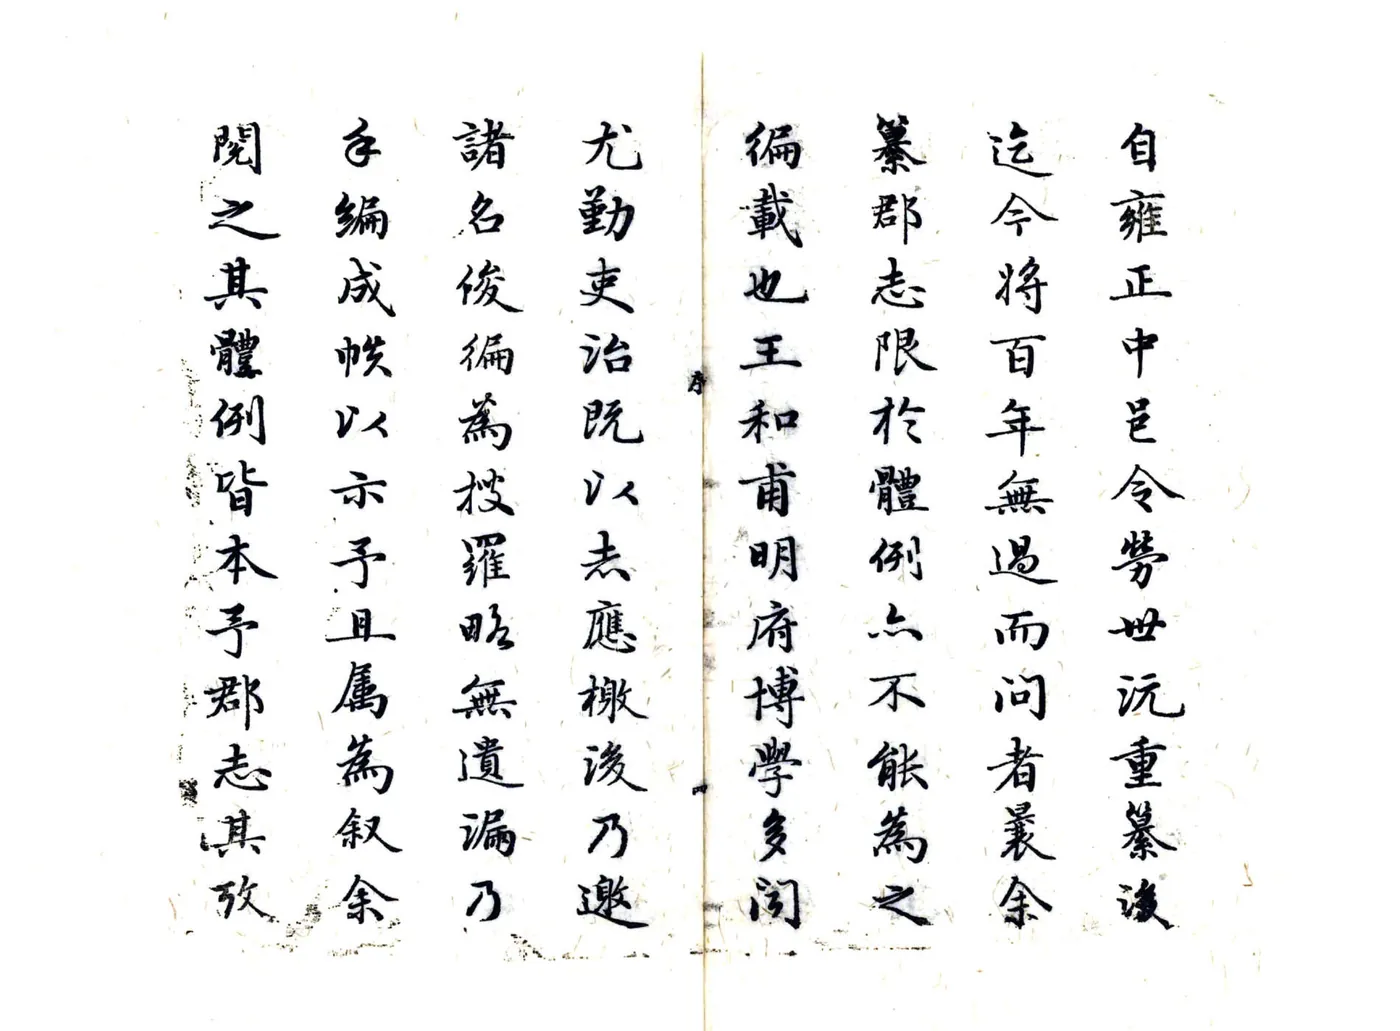 自雍正中邑令勞世沅重纂後
迄今將百年無過而问者曩余
纂郡志限於體例亦不能為之
徧載也王和甫明府博學多闻
尤勤吏治既以志應檄後乃邀
諸名俊徧為搜羅略無遺漏乃
手編成帙以示予且属為叙余
閱之其體例皆本予郡志其攷
序
一